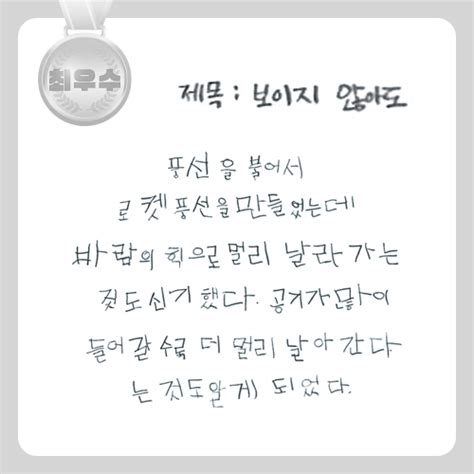 최우수
제목 : 보이지 않아도
풍선을 불어서
로켓풍선을 만들었는데
바람의 힉으로 멀리 날라가는
것도 신기했다. 공기가 많이
들어갈 수록 더 멀리 날아 간다
는 것도 알게 되었다.